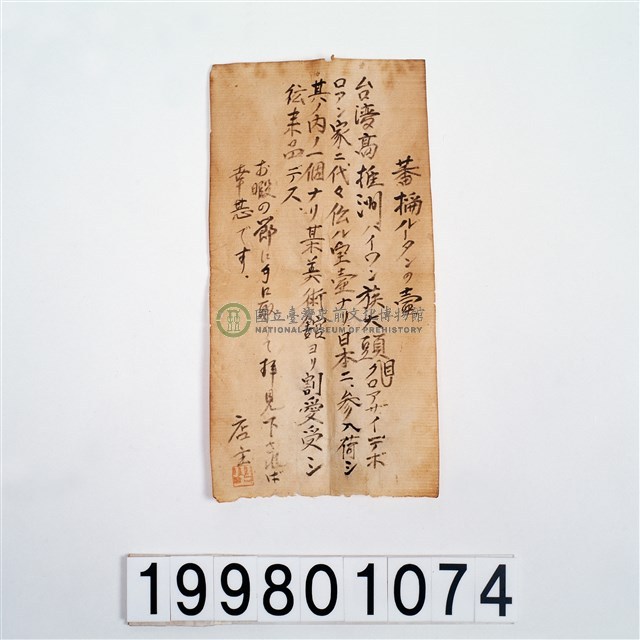 蕃稱ルータンの壷
台湾高雄洲パイワン族大頭目クロアザイデボ
ロアン家ニ代々伝ル宝壷ナリ日本ニ、参入荷シ
其ノ内ノ一個ナリ某美術館ヨリ割愛受シ
伝来品デス、
お暇の節に手に取って拝見下されば
幸甚です、
店主
國立臺灣史前文化博物館
NATIONAL MUSEUM OF PREHISTORY
199801074